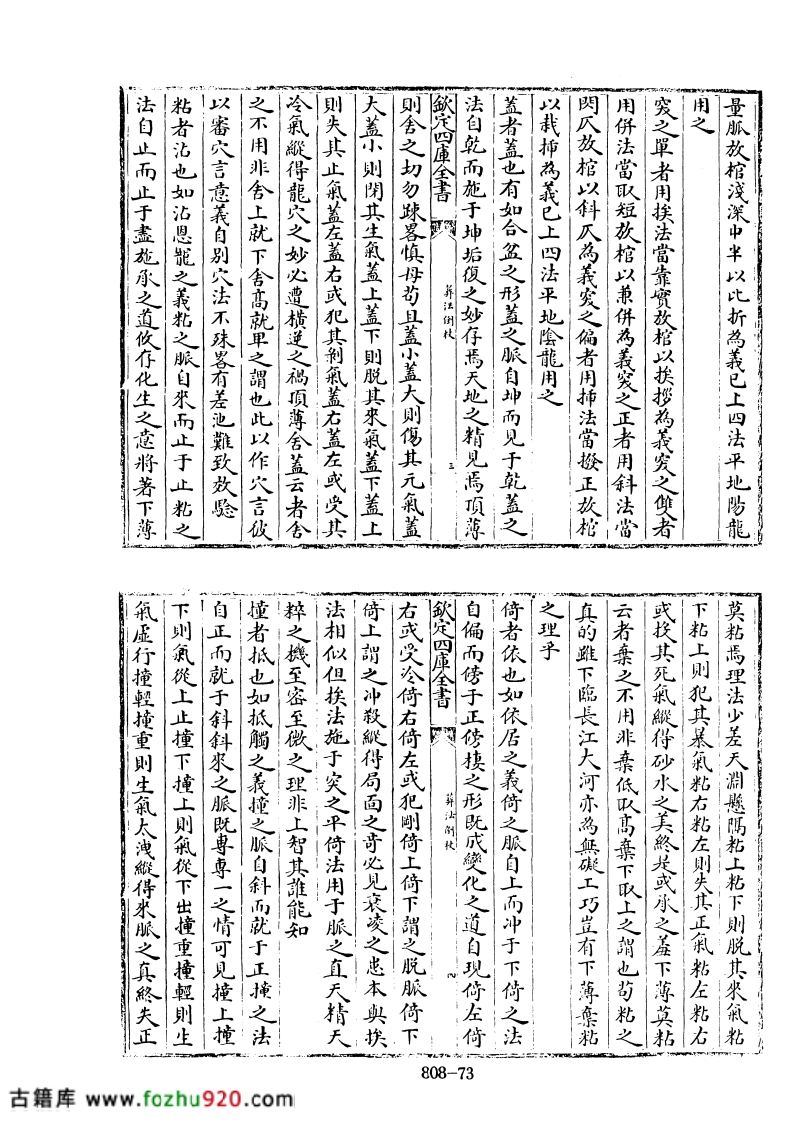 量脈放棺淺深中半以比折為義已上四法平地陽龍
用之
窔之單者用挨法當靠實放棺以挨拶為義窔之雙者
用併法當取短放棺以兼併為義窔之正者用斜法當
閃仄放棺以斜仄為義窔之偏者用挿法當撥正放棺
以栽挿為義已上四法平地陰龍用之
蓋者蓋也有如合盆之形蓋之脈自坤而見于乾蓋之
法自乾而施于坤垢復之妙存焉天地之精見焉頂薄
欽定四庫全書
葬法倒杖
三
則舍之切勿踈畧慎毋苟且蓋小蓋大則傷其元氣蓋
大蓋小則閉其生氣蓋上蓋下則脱其來氣蓋下蓋上
則失其止氣蓋左蓋右或犯其剝氣蓋右蓋左或受其
冷氣縱得龍穴之妙必遭橫逆之禍頂薄舍蓋云者舍
之不用非舍上就下舍髙就卑之謂也此以作穴言彼
以審穴言意義自别穴法不殊畧有差池難致放驗
粘者沾也如沾恩寵之義粘之脈自來而止于止粘之
法自止而止于盡施承之道攸存化生之意將著下薄
莫粘焉理法少差天淵懸隔粘上粘下則脱其來氣粘
下粘上則犯其暴氣粘右粘左則失其正氣粘左粘右
或投其死氣縱得砂水之美終是或承之羞下薄莫粘
云者棄之不用非棄低取髙棄下取上之謂也苟粘之
真的雖下臨長江大河亦為無礙工巧豈有下薄棄粘
之理乎
倚者依也如依居之義倚之脈自上而冲于下倚之法
自偏而傍于正傍棲之形既成變化之道自現倚左倚
欽定四庫全書
葬法倒杖
四
右或受冷倚右倚左或犯剛倚上倚下謂之脱脈倚下
倚上謂之冲殺縱得局面之竒必見衰凌之患本與挨
法相似但挨法施于突之平倚法用于脈之直天精天
粹之機至宻至微之理非上智其誰能知
撞者抵也如抵觸之義撞之脈自斜而就于正撞之法
自正而就于斜斜來之脈既專專一之情可見撞上撞
下則氣從上止撞下撞上則氣從下出撞重撞輕則生
氣虛行撞輕撞重則生氣太洩縱得來脈之真終失正
808-73
古籍库 www.fozhu920.com